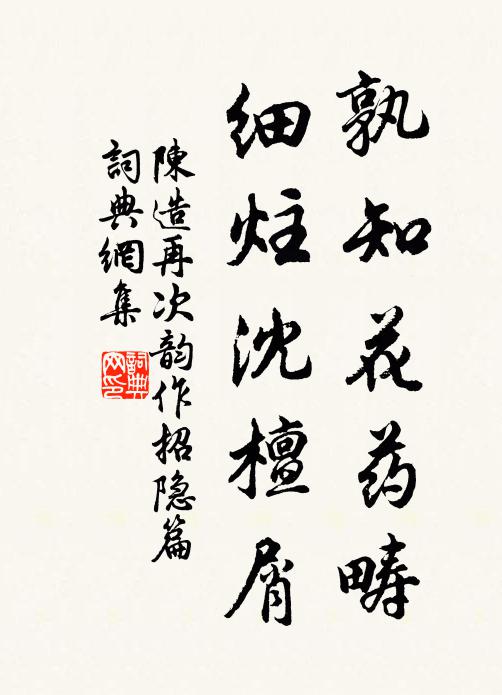 孰知花药畴
细炷沈檀屑
陳造再次韵作招隐篇
詞典網集
詞典网印